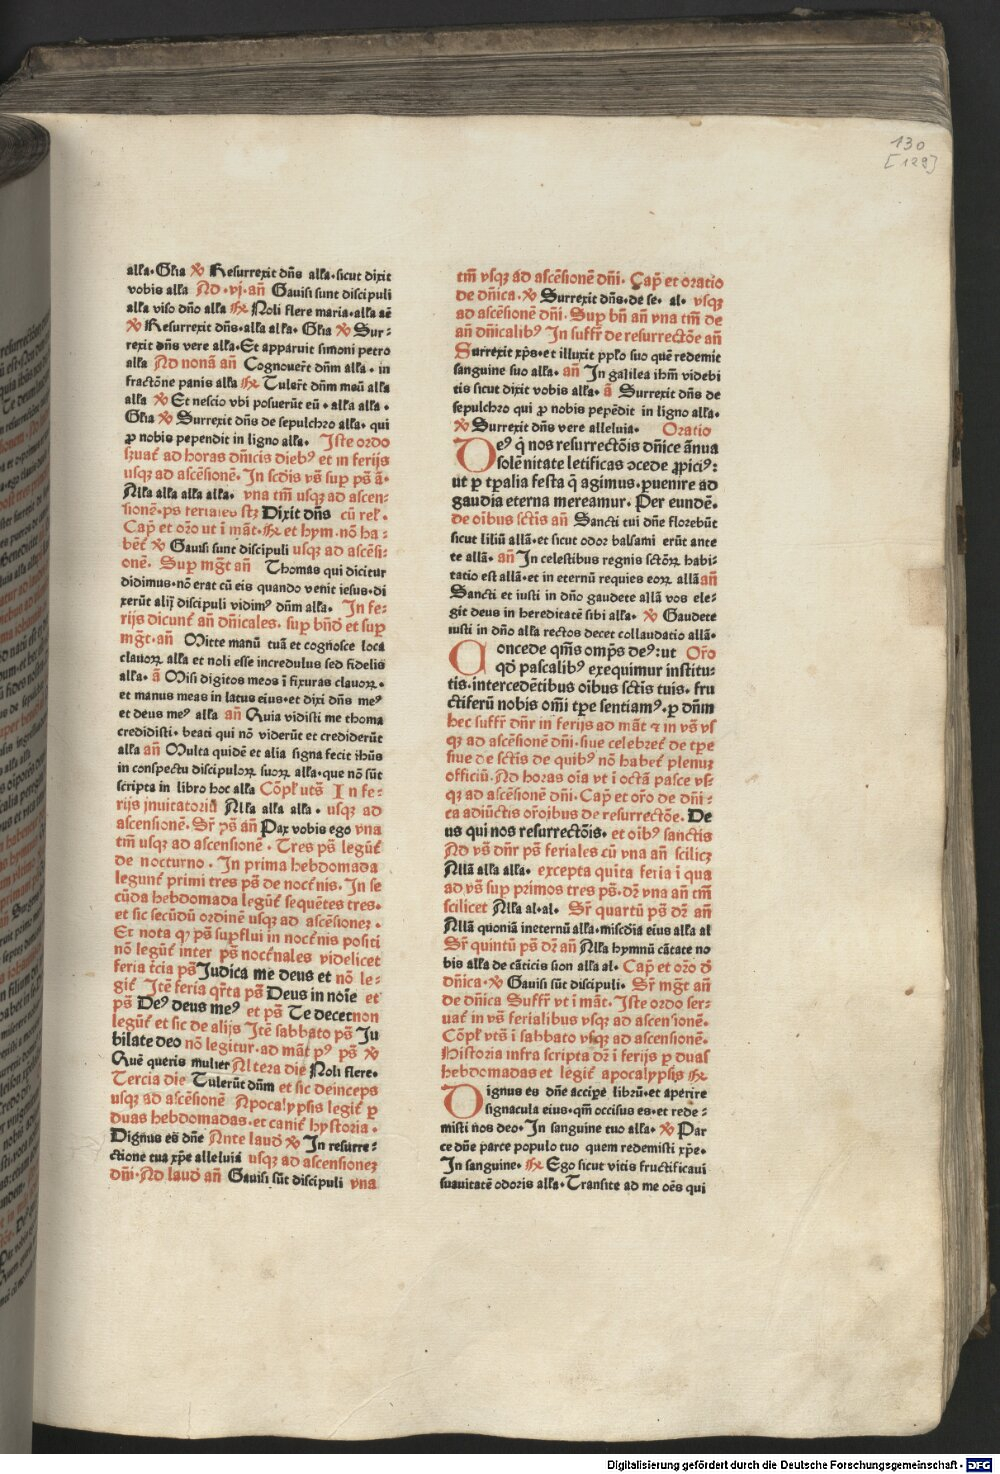 130
[129]
alła. Głia ℣ Resurrexit dñs alła. sicut dixit
vobis alła Ad .vj. añ Gauisi sunt discipuli
alła viso dño alła ℟ Noli flere maria. alła aē
℣ Resurrexit dñs. alła alła. Głia ℣ Sur-
rexit dñs vere alła. Et apparuit simoni petro
alła Ad nonā añ Cognouert̄ dñm alła. in
fractōne panis alła ℟ Tulert̄ dñm meū alła
alła ℣ Et nescio vbi posuerūt eū. alła alła.
Głia ℣ Surrexit dñs de sepulchro alła. qui
ꝓ nobis pependit in ligno alła. Iste ordo
ẜuat̄ ad horas dñicis dieb⁹ et in ferijs
usqꝫ ad ascēsionē. In scd̄is vs̄ sup̄ ps̄ ā.
Alła alła alła alła. vna tm̄ usqꝫ ad ascen-
sionē. ps feriales stꝫ Dixit dñs cū rel̄.
Cap̄ et orō ut ī māt̄. ℟ et hym. nō ha-
bēt̄ ℣ Gauisi sunt discipuli usqꝫ ad ascēsi-
onē. Sup̄ mḡt añ Thomas qui dicitur
didimus. nō erat cū eis quando venit iesus. di
xerūt alij discipuli vidim⁹ dñm alła. In fe-
rijs dicunt̄ añ dñicales. sup̄ bñd̄ et sup̄
mḡt. añ Mitte manū tuā et cognosce loca
clauoꝝ alła et noli esse incredulus sed fidelis
alła. ā Misi digitos meos ī fixuras clauoꝝ.
et manus meas in latus eius. et dixi dñs me⁹
et deus me⁹ alła añ Quia vidisti me thoma
credidisti. beati qui nō viderūt et crediderūt
alła añ Multa quidē et alia signa fecit ih̄us
in conspectu discipuloꝝ suoꝝ alła. que nō sūt
scripta in libro hoc alła Cōpl̄ vts̄ In fe-
rijs jnuitatoriū Alła alła alła. usqꝫ ad
ascensionē. Sr̄ ps̄ añ Pax vobis ego vna
tm̄ usqꝫ ad ascensionē. Tres ps̄ legūt̄
de nocturno. In prima hebdomada
legunt̄ primi tres ps̄ de noct̄nis. In se
cūda hebdomada legūt̄ sequētes tres.
et sic secūdū ordinē usqꝫ ad ascensionēꝫ.
Et nota qꝫ ps̄ sup̄flui in noct̄nis positi
nō legūt̄ inter ps̄ noct̄nales videlicet
feria t̄cia ps̄ Judica me deus et nō le-
git̄ Itē feria qr̄ta ps̄ Deus in noīe et
ps̄ De⁹ deus me⁹ et ps̄ Te decet non
legūt̄ et sic de alijs Itē sabbato ps̄ Ju
bilate deo nō legitur. ad māt̄ p⁹ ps̄ ℣
Quē queris mulier Altera die Noli flere.
Tercia die Tulerūt dñm et sic deinceps
usqꝫ ad ascēsionē Apocalypsis legit̄ ꝑ
duas hebdomadas. et canit̄ hystoria.
Dignus es dñe Ante laud̄ ℣ In resurre-
ctione tua xp̄e alleluia usqꝫ ad ascensioneꝫ
dñi. Ad laud̄ añ Gauisi sūt discipuli vna
tm̄ vsqꝫ ad ascēsionē dñi. Cap̄ et oratio
de dñica. ℣ Surrexit dñs. de se. al. vsqꝫ
ad ascēsionē dñi. Sup̄ bñ añ vna tm̄ de
añ dñicalib⁹ In suffr̄ de resurrectōe añ
Surrexit xp̄s. et illuxit pplo suo quē redemit
sanguine suo alła. añ In galilea ih̄m videbi
tis sicut dixit vobis alła. ā Surrexit dñs de
sepulchro qui ꝓ nobis pepēdit in ligno alła.
℣ Surrexit dñs vere alleluia. Oratio
De⁹ q̇ nos resurrectōis dñice ānua
solēnitate letificas ꝯcede ꝓpici⁹:
ut ꝑ tꝑalia festa q̄ agimus. ꝑuenire ad
gaudia eterna mereamur. Per eundē.
de oībus sc̄tis añ Sancti tui dñe florebūt
sicut liliū allā. et sicut odor balsami erūt ante
te allā. añ In celestibus regnis sc̄toꝝ habi-
tatio est allā. et in eternū requies eoꝝ allā añ
Sancti et iusti in dño gaudete allā vos ele-
git deus in hereditatē sibi alła. ℣ Gaudete
iusti in dño alła rectos decet collaudatio allā.
Concede qm̄s omp̄s de⁹: ut Orō
qd̄ pascalib⁹ exequimur institu-
tis. intercedētibus oībus sc̄tis tuis. fru
ctiferū nobis om̄i tꝑe sentiam⁹. ꝑ dñm
hec suffr̄ dn̄r in ferijs ad māt̄ ⁊ in vs̄ vs
qꝫ ad ascēsionē dñi. siue celebret̄ de tꝑe
siue de sc̄tis de quib⁹ nō habet̄ plenuꝫ
officiū. Ad horas oīa vt ī octā pasce vs-
qꝫ ad ascēsionē dñi. Cap̄ et orō de dñi-
ca adiūctis orōibus de resurrectōe. De
us qui nos resurrectōis. et oīb⁹ sanctis
Ad vs̄ dn̄r ps̄ feriales cū vna añ scilicꝫ
Allā alła alła. excepta quīta feria ī qua
ad vs̄ sup̄ primos tres ps̄. dr̄ vna añ tm̄
scilicet Alła al. al. Sr̄ quartū ps̄ dr̄ añ
Allā quoniā ineternū alła. miscd̄ia eius alła al
Sr̄ quintū ps̄ dr̄ añ Alła hymnū cātate no
bis alła de cāticis sion alła al. Cap̄ et orō d̄
dñica. ℣ Gauisi sūt discipuli. Sr̄ mḡt añ
de dñica Suffr̄ vt ī māt̄. Iste ordo ser-
uat̄ in vs̄ ferialibus vsqꝫ ad ascensionē.
Cōpl̄ vts̄ ī sabbato vsqꝫ ad ascensionē.
Historia infra scripta dr̄ ī ferijs ꝑ duas
hebdomadas et legit̄ apocalypsis ℟
Dignus es dñe accipe librū. et aperire
signacula eius. qm̄ occisus es. et rede-
misti nos deo. In sanguine tuo alła. ℣ Par
ce dñe parce populo tuo quem redemisti xp̄e.
In sanguine. ℟ Ego sicut vitis fructificaui
suauitatē odoris alła. Transite ad me oēs qui
Digitalisierung gefördert durch die Deutsche Forschungsgemeinschaft - DFG